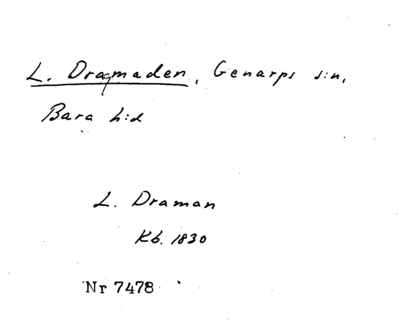 L. Dragmaden, Genarps s:n,
Bara h:d
L. Draman
Kb. 1830
Nr 7478